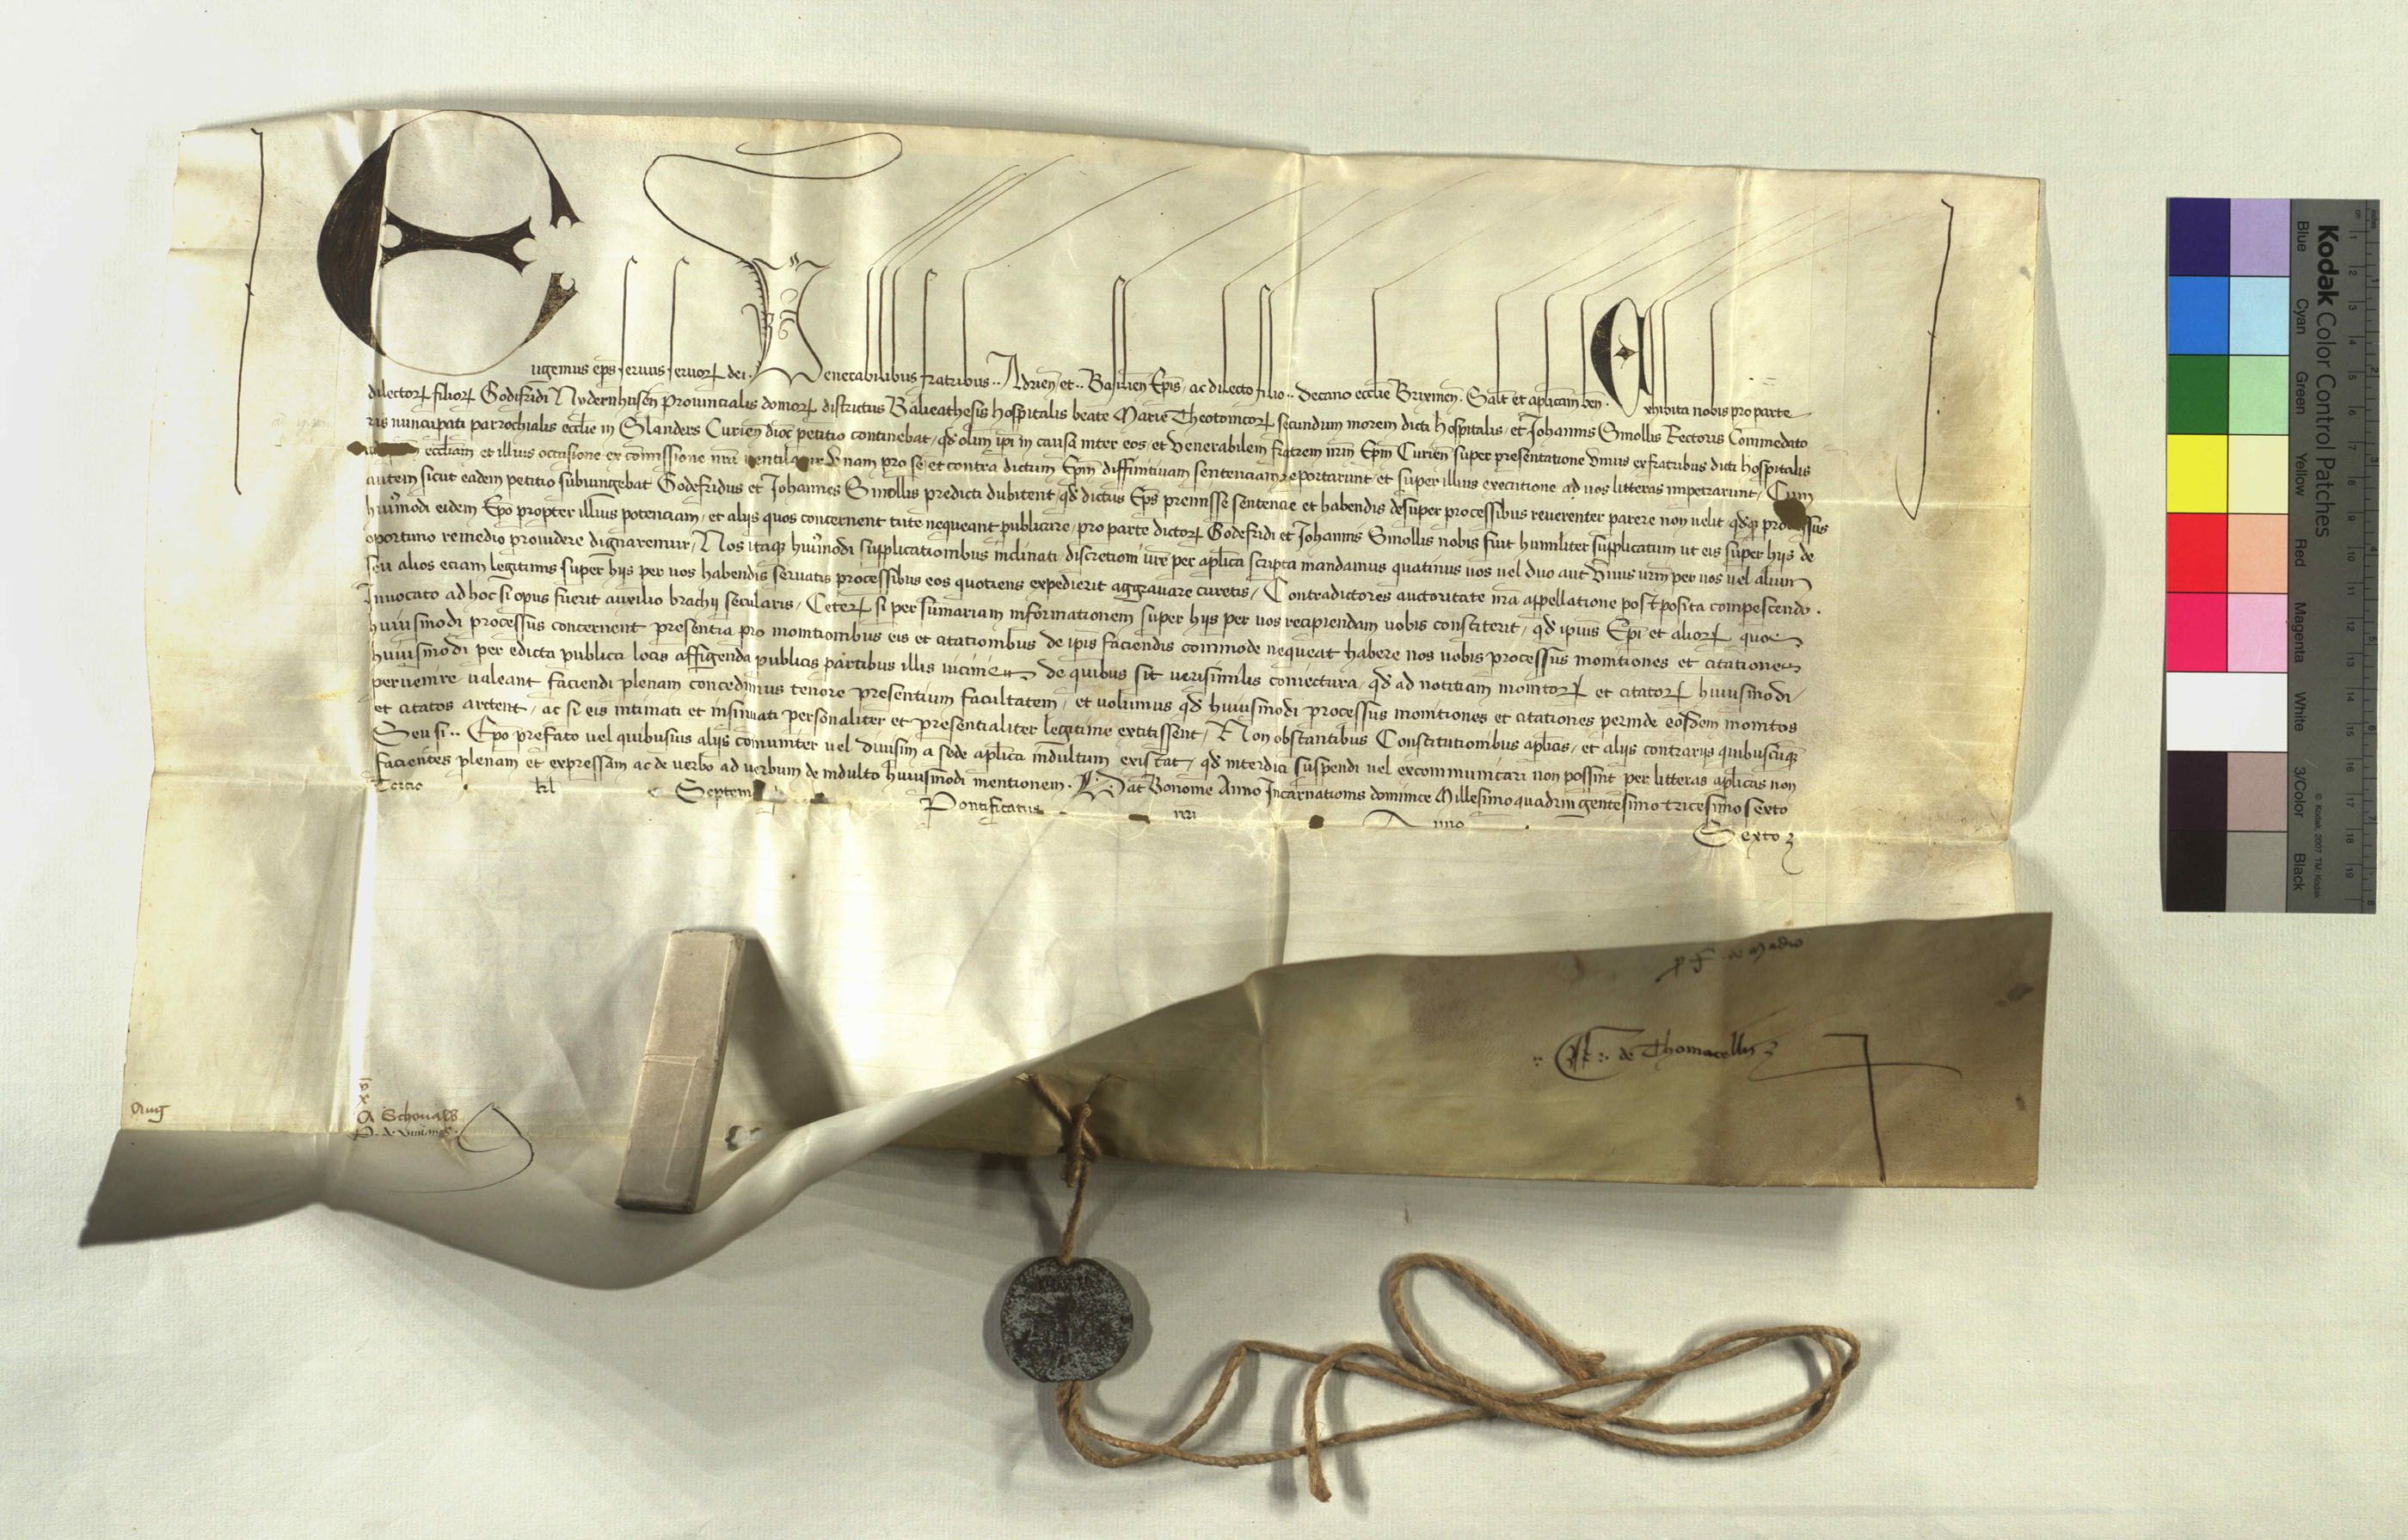 Eugenius ep̄s seruus seruoꝝ dei. Venerabilibus fratribus ·· Adrien̄ et ·· Basilien̄ Ep̄is, ac dilecto filio ·· Decano eccl̄ie Brixinen̄. Salt̄ et apl̄icam ben̄. Exhibita nobis pro parte
dilectoꝝ filioꝝ Godifridi Nydernhusen̄ prouincialis domoꝝ districtus Balieathesis hospitalis beate Marie Theotonicoꝝ secundum morem dicti hospitalis, et Johannis Smollis Rectoris Commedato
ris nuncupati parrochialis eccl̄ie in Slanders Curien̄ dioc̄ petitio continebat, qd̄ olim ip̄i in causa inter eos, et Venerabilem fratrem nr̄m Ep̄m Curien̄ super presentatione vnius ex fratribus dicti hospitalis
eccl̄iam et illius occasione ex com̄issione nr̄a uentilata vnam pro se et contra dictum Ep̄m diffinitiuam sentenciam reportarunt, et super illius executione ad uos litteras impetrarunt, Cum
autem sicut eadem petitio subiungebat Godefridus et Johannes Smollis predicti dubitent, qd̄ dictus Ep̄s premisse sentencie et habendis desuper processibus reuerenter parere non uelit, qd̄qꝫ processus
huiusmodi eidem Ep̄o propter illius potenciam, et alijs quos concernent tute nequeant publicare, pro parte dictoꝝ Godefridi et Johannis Smollis nobis fuit humiliter supplicatum ut eis super hijs de
oportuno remedio prouidere dignaremur, Nos itaqꝫ huiusmodi supplicationibus inclinati discretioni ur̄e per apl̄ica scripta mandamus quatinus uos uel duo aut vnus ur̄m per uos uel alium
seu alios eciam legitimis super hijs per uos habendis seruatis processibus eos quotiens expedierit aggrauare curetis, Contradictores auctoritate nr̄a appellatione postposita compescendo.
Inuocato ad hoc si opus fuerit auxilio brachij secularis, Ceteꝝ si per sumariam informationem super hijs per uos recipiendam uobis constiterit, qd̄ ip̄ius Ep̄i et alioꝝ quos
huiusmodi processus concernent presentia pro monitionibus eis et citationibus de ip̄is faciendis commode nequeat haberi nos uobis processus monitiones et citationes
huiusmodi per edicta publica locis affigenda publicis partibus illis uicinis de quibus sit uerisimilis coniectura, qd̄ ad notitiam monitoꝝ et citatoꝝ huiusmodi,
peruenire ualeant faciendi plenam concedimus tenore presentium facultatem, et uolumus qd̄ huiusmodi processus monitiones et citationes perinde eosdem monitos
et citatos arctent, ac si eis intimati et insinuati personaliter et presentialiter legitime extitissent, Non obstantibus Constitutionibus apl̄icis, et alijs contrarijs quibuscūqꝫ
Seu si ·· Ep̄o prefato uel quibusuis alijs comuniter uel diuisim a sede apl̄ica indultum existat, qd̄ interdici suspendi uel excommunicari non possint per litteras apl̄icas non
facientes plenam et expressam ac de uerbo ad uerbum de indulto huiusmodi mentionem. Dat̄ Bononie Anno Incarnationis dominice Millesimoquadringentesimotricesimosexto
Tercio kl̄ Septem
Pontificatus nr̄i Anno Sexto
de Thomacellis
Aug
x
A Schouaes